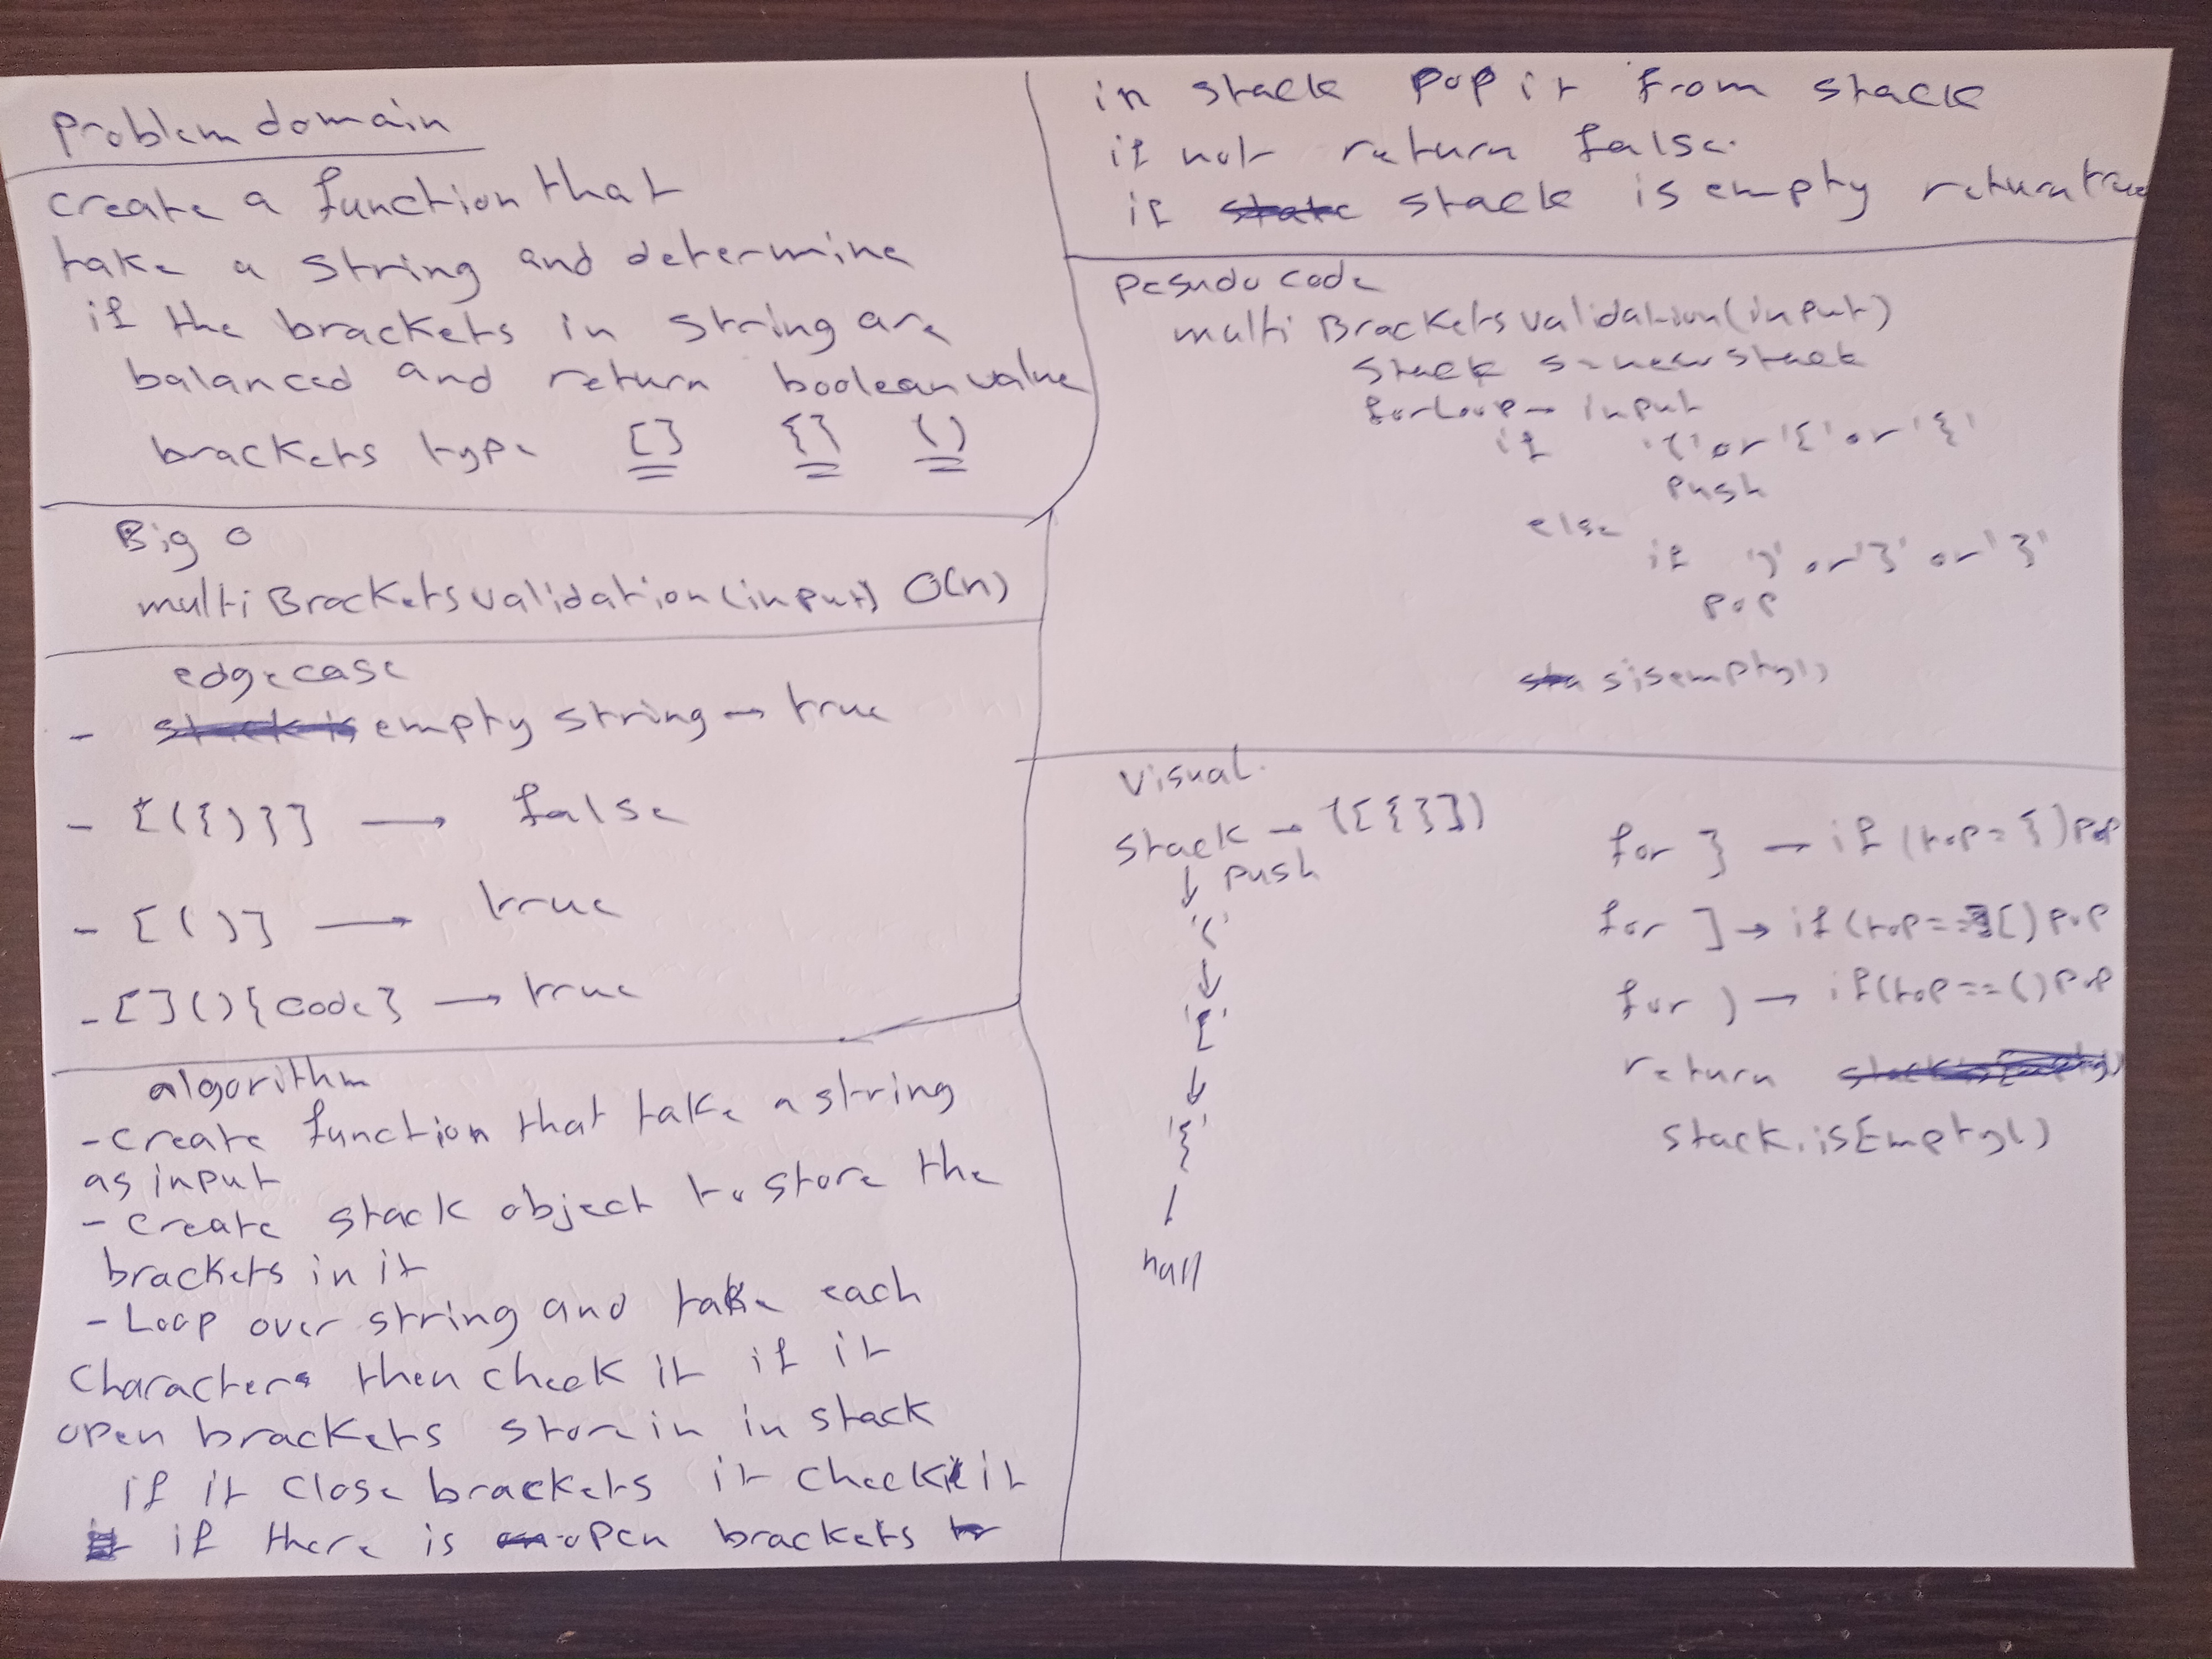 problem domain
create a function that
take a string and determine
if the brackets in string are
balanced and return boolean value
brackets type [] {} ()
Big O
multiBracketsvalidation(input) O(n)
edge case
- empty string → true
- [({)}] → false
- [()] → true
- [](){code} → true
algorithm
- create function that take a string
as input
- create stack object to store the
brackets in it
- Loop over string and take each
characters then check it if it
open brackets store in in stack
if it close brackets it check it
if there is open brackets
in stack pop it from stack
if not return false.
if stack is empty return true
pesudo code
multiBracketsvalidation(input)
Stack s=new stack
forLoop → input
if '(' or '[' or '{'
push
else
if ')' or ']' or '}'
pop
sisempty()
visual.
stack → ([{}])
↓ push
'('
↓
'['
↓
'{'
null
for } → if (top = {) pop
for ] → if (top == [) pop
for ) → if (top == () pop
return
stack.isEmpty()